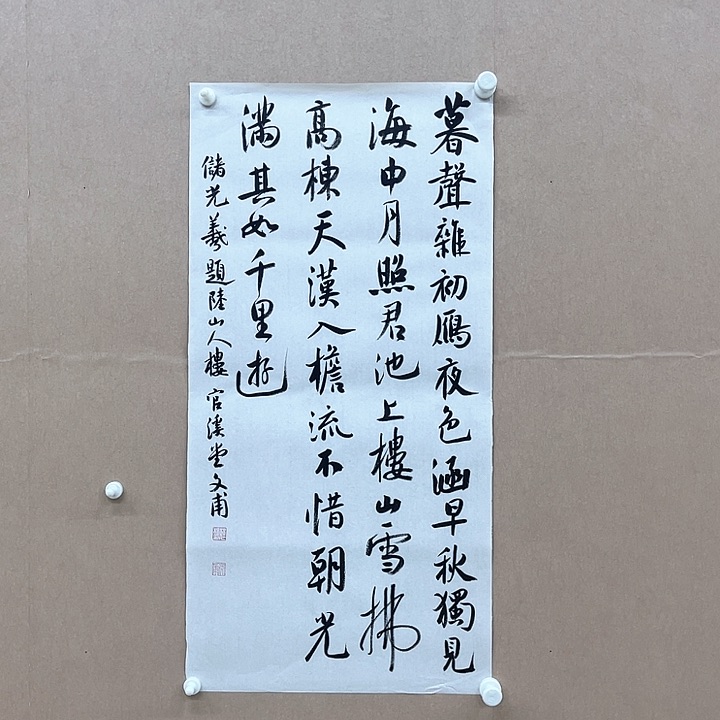 暮聲雜初鴈夜色涵早秋獨見
海中月照君池上樓山雲拂
高棟天漢入檐流不惜朝光
滿其如千里遊
儲光羲題陸山人樓 官溪堂文甫